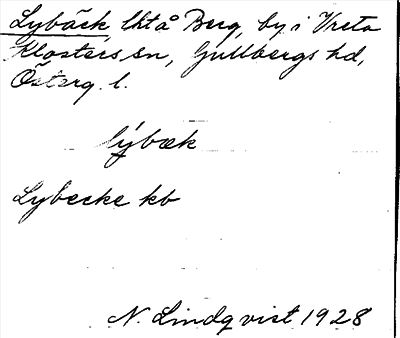 Lybäck, lht å Berg, by i Vreta
Klosters sn, Gullbergs hd,
Österg. l.
lýbæk
Lybecke kb
N. Lindqvist 1928